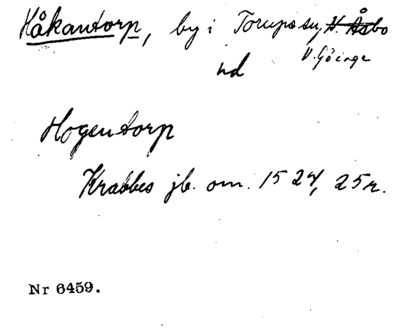 Håkantorp, by i Torups sn, N. Åsbo
V. Göinge
nd
Hogentorp
Krabbes jb. om. 1524, 25r.
Nr 6459.